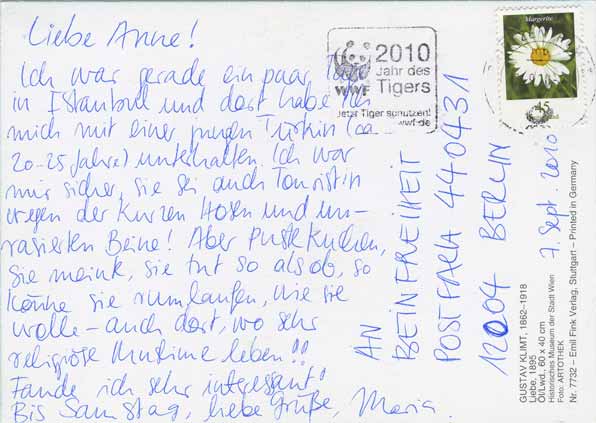 Liebe Anne!
Ich war gerade ein paar Tage
in Istanbul und dort habe ich
mich mit einer jungen Türkin (ca.
20-25 Jahre) unterhalten. Ich war
mir sicher, sie sei auch Touristin
wegen der kurzen Hosen und un-
rasierten Beine! Aber Pustekuchen,
sie meinte, sie tut so als ob, so
könne sie rumlaufen, wie sie
wolle – auch dort, wo sehr
religiöse Muslime leben!!
Fande ich sehr interessant!
Bis Samstag, liebe Grüße, Maria.
WWF
2010
Jahr des
Tigers
Jetzt Tiger schützen!
wwf.de
Margerite
45
AN
BEINFREIHEIT
POSTFACH 440431
12004 BERLIN
7. Sept. 2010
GUSTAV KLIMT, 1862–1918
Liebe, 1895
Öl/Lwd., 60 x 40 cm
Historisches Museum der Stadt Wien
Foto: ARTOTHEK
Nr. 7732 – Emil Fink Verlag, Stuttgart – Printed in Germany